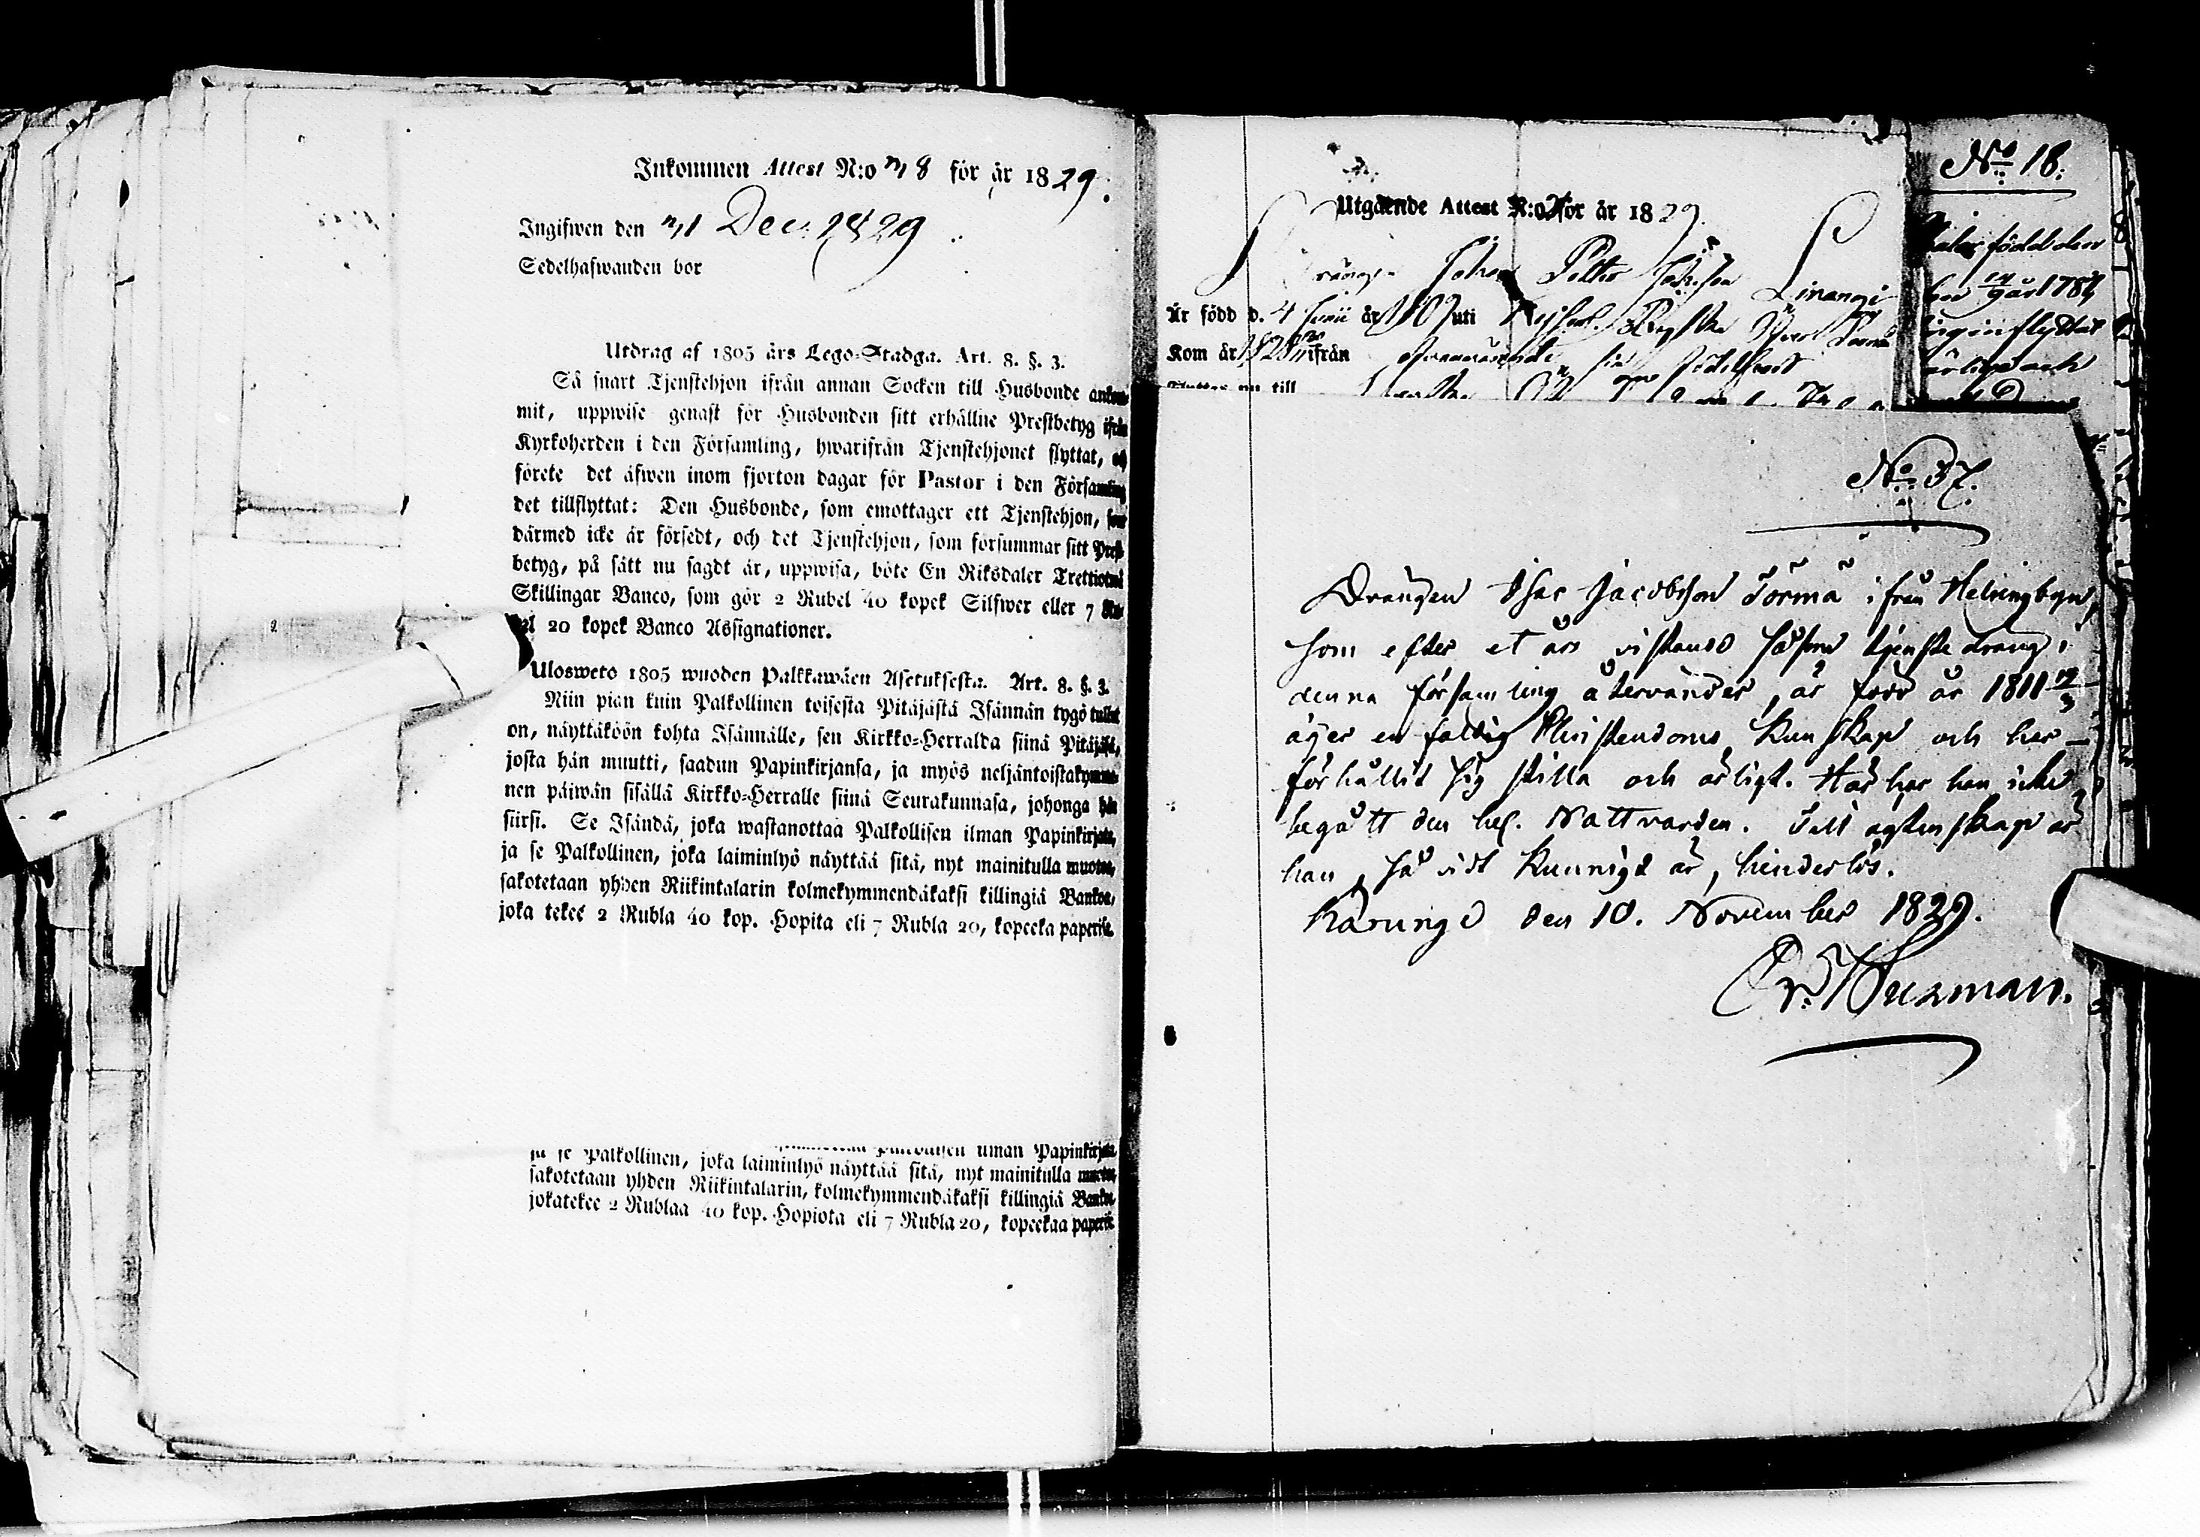 Inkommen Attest N:o 18 för år 1829.
Ingifwen den 1 Dec. 1829
Sedelhafwanden bor
Utdrag af 1805 års Lego-Stadga. Art. 8. §. 3.
Så snart Tjenstehjon ifrån annan Socken till Husbonde ankom-
mit, uppwise genast för Husbonden sitt erhållne Prestbetyg ifrån
Kyrkoherden i den Församling, hwarifrån Tjenstehjonet flyttat, och
förete det äfwen inom fjorton dagar för Pastor i den Församling
det tillflyttat: Den Husbonde, som emottager ett Tjenstehjon, som
därmed icke är försedt, och det Tjenstehjon, som försummar sitt Prest-
betyg, på sätt nu sagdt är, uppwisa, böte En Riksdaler Trettiotwå
Skillingar Banco, som gör 2 Rubel 40 kopek Silfwer eller 7 Ru-
bel 20 kopek Banco Assignationer.
Ulosweto 1805 wuoden Palkkawäen Asetuksesta. Art. 8. §. 3.
Niin pian kuin Palkollinen toisesta Pitäjästä Isännän tygö tullut
on, näyttäköön kohta Isännälle, sen Kirkko-Herralda siinä Pitäjäsä,
josta hän muutti, saadun Papinkirjansa, ja myös neljäntoistakymme-
nen päiwän sisällä Kirkko-Herralle siinä Seurakunnasa, johonga hän
siirsi. Se Isändä, joka wastanottaa Palkollisen ilman Papinkirjata,
ja se Palkollinen, joka laiminlyö näyttää sitä, nyt mainitulla muoton,
sakotetaan yhden Riikintalarin kolmekymmendäkaksi killingiä Bankos,
joka tekee 2 Rubla 40 kop. Hopita eli 7 Rubla 20, kopeeka paperisa.
Palkollisen ilman Papinkirjata
ja se Palkollinen, joka laiminlyö näyttää sitä, nyt mainitulla muoton,
sakotetaan yhden Riikintalarin, kolmekymmendäkaksi killingiä Bankos,
jokatekee 2 Rublaa 40 kop. Hopiota eli 7 Rubla 20, kopeekaa paperisa.
Utgående Attest N:o för år 1829.
Drängen Johan Petter
Är född d. 4 Junii år uti
Kom år 1828 ifrån
till
No 18.
född den
år 178
inflyttat
ärlig och
No 37.
Drängen Isac Jacobsson Törmä ifrån Helsingbyn,
som efter et års vistande såsom tjenste dräng i
denna församling återvänder, är född år 1811 12/3
äger enfaldig Christendoms kunskap och har
förhållit sig stilla och ärligt. Här har han icke
begått den hel. Nattvarden. Till ägtenskap är
han, så vidt kunnigt är, hinderlös.
Karungi den 10. November 1829.